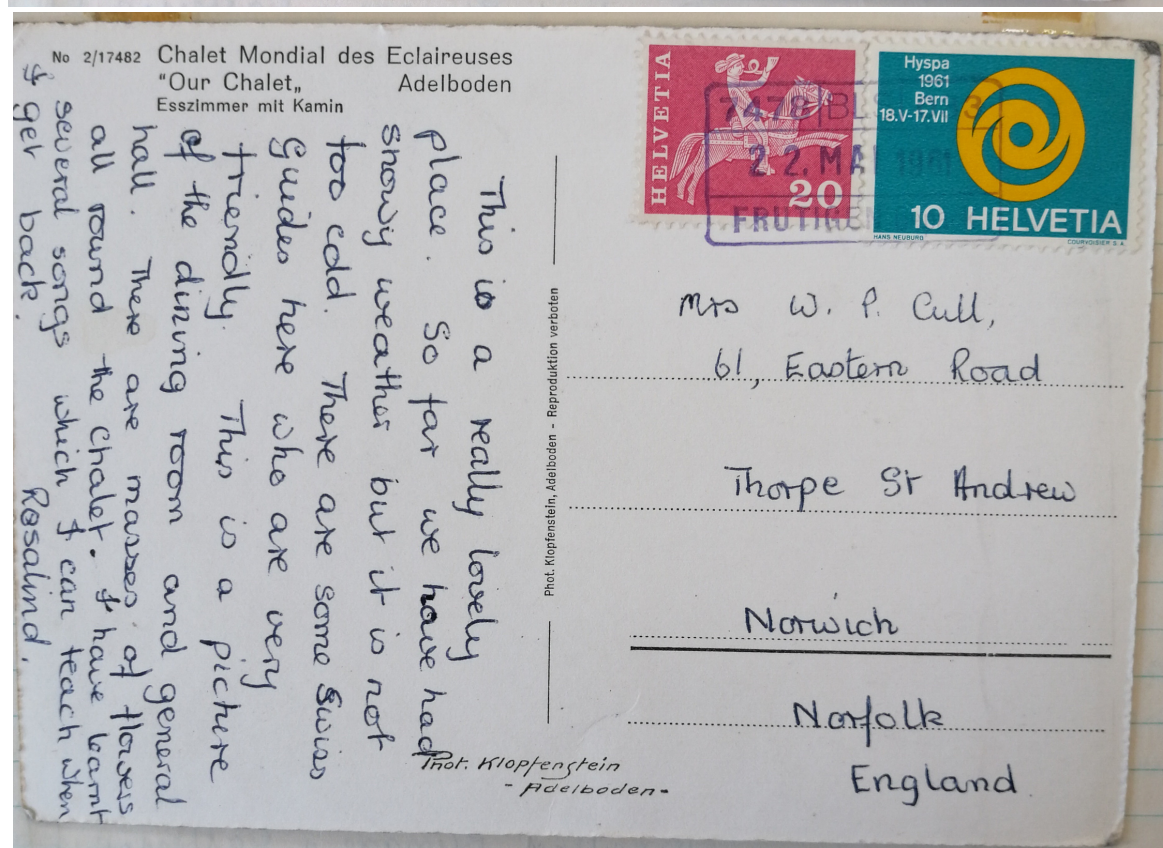 No 2/17482 Chalet Mondial des Eclaireuses
"Our Chalet„ Adelboden
Esszimmer mit Kamin
This is a really lovely
place. So far we have had
snowy weather but it is not
too cold. There are some Swiss
Guides here who are very
friendly. This is a picture
of the dining room and general
hall. There are masses of flowers
all round the chalet. I have learnt
several songs which I can teach when
I get back.
Rosalind.
Phot. Klopfenstein, Adelboden - Reproduktion verboten
Phot. Klopfenstein
- Adelboden -
HELVETIA
20
Hyspa
1961
Bern
18.V-17.VII
10 HELVETIA
HANS NEUBURG
COURVOISIER S A
7478 BLS 3
22. MAI 1961
FRUTIGEN
Mrs W. P. Cull,
61, Eastern Road
Thorpe St Andrew
Norwich
Norfolk
England